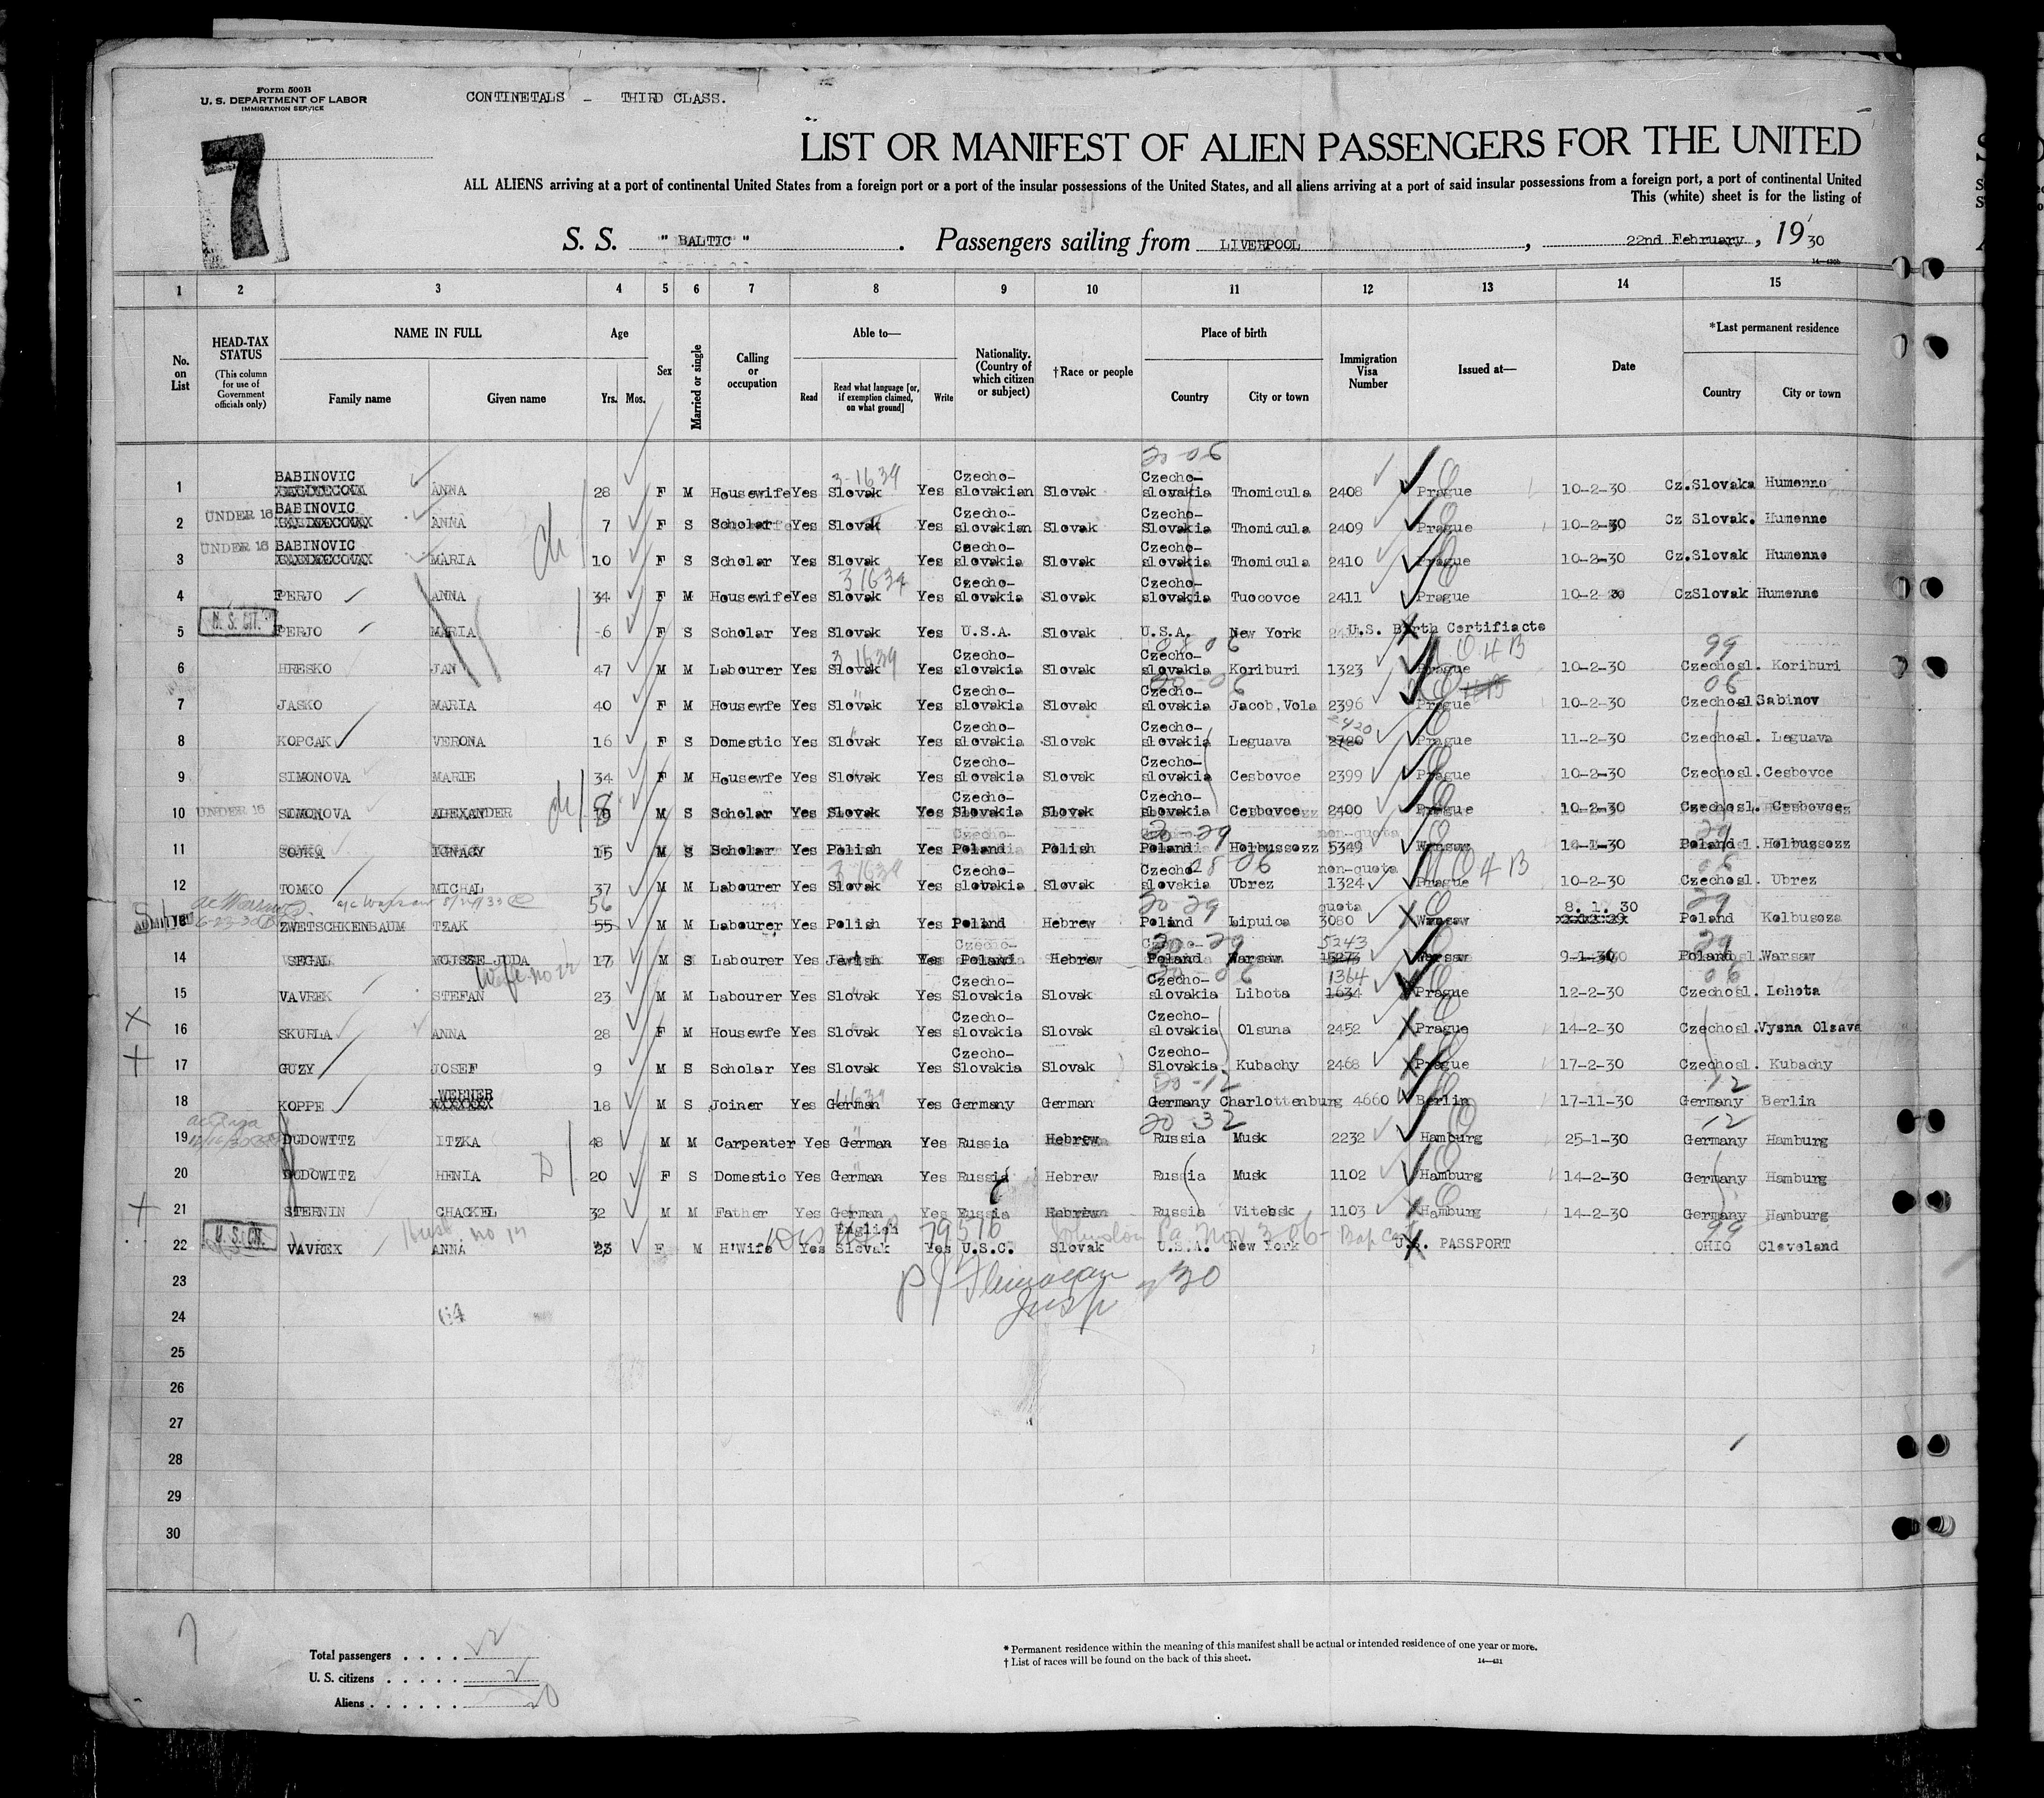 Form 500B
U. S. DEPARTMENT OF LABOR
IMMIGRATION SERVICE
CONTINETALS - THIRD CLASS.
7
LIST OR MANIFEST OF ALIEN PASSENGERS FOR THE UNITED
ALL ALIENS arriving at a port of continental United States from a foreign port or a port of the insular possessions of the United States, and all aliens arriving at a port of said insular possessions from a foreign port, a port of continental United
This (white) sheet is for the listing of
S. S. " BALTIC " . Passengers sailing from LIVERPOOL , 22nd February , 19 30
1 2 3 4 5 6 7 8 9 10 11 12 13 14 15
No. on List
HEAD-TAX STATUS (This column for use of Government officials only)
NAME IN FULL
Family name Given name
Age
Yrs. Mos.
Sex
Married or single
Calling or occupation
Able to—
Read Read what language [or, if exemption claimed, on what ground] Write
Nationality. (Country of which citizen or subject)
†Race or people
Place of birth
Country City or town
Immigration Visa Number
Issued at—
Date
*Last permanent residence
Country City or town
1 BABINOVIC ANNA 28 F M Housewife Yes Slovak Yes Czecho-slovakian Slovak Czecho-slovakia Thomicula 2408 Prague 10-2-30 Cz.Slovaka Humenne
2 UNDER 16 BABINOVIC ANNA 7 F S Scholar Yes Slovak Yes Czecho-slovakian Slovak Czecho-Slovakia Thomicula 2409 Prague 10-2-30 Cz Slovak. Humenne
3 UNDER 16 BABINOVIC MARIA 10 F S Scholar Yes Slovak Yes Czecho-slovakia Slovak Czecho-slovakia Thomicula 2410 Prague 10-2-30 Cz.Slovak Humenne
4 PERJO ANNA 34 F M Housewife Yes Slovak Yes Czecho-slovakia Slovak Czecho-slovakia Tuocovce 2411 Prague 10-2-30 CzSlovak Humenne
5 U. S. CIT. PERJO MARIA 6 F S Scholar Yes Slovak Yes U.S.A. Slovak U.S.A. New York U.S. Birth Certifiacte
6 HRESKO JAN 47 M M Labourer Yes Slovak Yes Czecho-slovakia Slovak Czecho-slovakia Koriburi 1323 Prague 10-2-30 Czechosl. Koriburi
7 JASKO MARIA 40 F M Housewfe Yes Slovak Yes Czecho-slovakia Slovak Czecho-slovakia Jacob.Vola 2396 Prague 10-2-30 Czechosl Sabinov
8 KOPCAK VERONA 16 F S Domestic Yes Slovak Yes Czecho-slovakia Slovak Czecho-slovakia Leguava 2420 Prague 11-2-30 Czechosl. Leguava
9 SIMONOVA MARIE 34 F M Housewfe Yes Slovak Yes Czecho-slovakia Slovak Czecho-slovakia Cesbovce 2399 Prague 10-2-30 Czechosl. Cesbovce
10 UNDER 16 SIMONOVA ALEXANDER 8 M S Scholar Yes Slovak Yes Czecho-Slovakia Slovak Czecho-slovakia Cesbovce 2400 Prague 10-2-30 Czechosl. Cesbovce
11 SOJKA IGNACY 15 M S Scholar Yes Polish Yes Poland Polish Poland Holbussozz non-quota 5349 Warsaw 14-1-30 Poland Holbussozz
12 TOMKO MICHAL 37 M M Labourer Yes Slovak Yes Czecho-slovakia Slovak Czecho-slovakia Ubrez non-quota 1324 Prague 10-2-30 Czechosl. Ubrez
13 ZWETSCHKENBAUM TZAK 55 56 M M Labourer Yes Polish Yes Poland Hebrew Poland Lipuica quota 3080 Warsaw 8. 1. 30 Poland Kolbusoza
14 SEGAL MOJSSE JUDA 17 M S Labourer Yes Jewish Yes Poland Hebrew Poland Warsaw 5243 Warsaw 9-1-30 Poland Warsaw
15 VAVREK STEFAN wife no 22 23 M M Labourer Yes Slovak Yes Czecho-Slovakia Slovak Czecho-slovakia Libota 1364 Prague 12-2-30 Czechosl. Lehota
16 SKURLA ANNA 28 F M Housewfe Yes Slovak Yes Czecho-slovakia Slovak Czecho-slovakia Olsuna 2452 Prague 14-2-30 Czechosl. Vysna Olsava
17 GUZY JOSEF 9 M S Scholar Yes Slovak Yes Czecho-Slovakia Slovak Czecho-Slovakia Kubachy 2468 Prague 17-2-30 Czechosl. Kubachy
18 KOPPE WERNER 18 M S Joiner Yes German Yes Germany German Germany Charlottenburg 4660 Berlin 17-11-30 Germany Berlin
19 DUDOWITZ ITZKA 48 M M Carpenter Yes German Yes Russia Hebrew Russia Musk 2232 Hamburg 25-1-30 Germany Hamburg
20 DUDOWITZ HENIA 20 F S Domestic Yes German Yes Russia Hebrew Russia Musk 1102 Hamburg 14-2-30 Germany Hamburg
21 STERNIN CHACKEL 32 M M Father Yes German Yes Russia Hebrew Russia Vitebsk 1103 Hamburg 14-2-30 Germany Hamburg
22 U. S. CIT. VAVREX ANNA 23 F M H'Wife Yes English Slovak Yes U.S.C. Slovak U.S.A. New York U.S. PASSPORT OHIO Cleveland
79516
23
24
25
26
27
28
29
30
Total passengers . . . . 22
U. S. citizens . . . . . 2
Aliens . . . . . . 20
* Permanent residence within the meaning of this manifest shall be actual or intended residence of one year or more.
† List of races will be found on the back of this sheet.
14—431